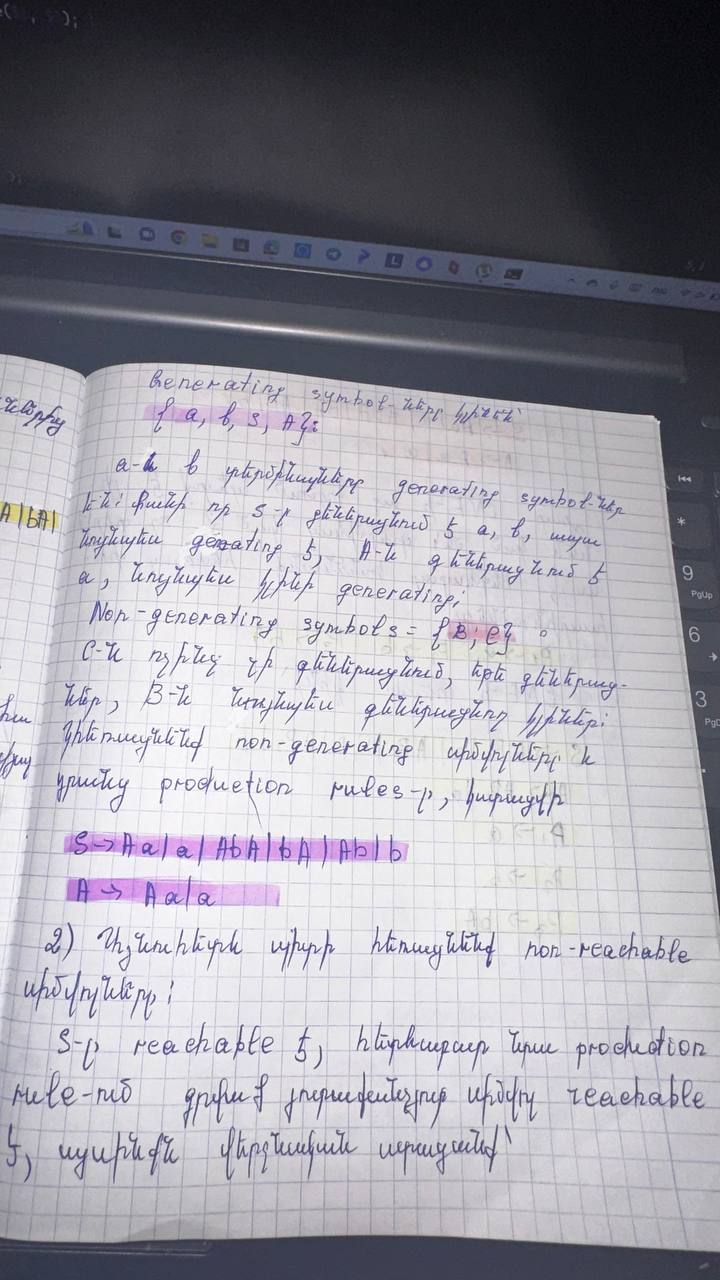 Generating symbol-ները կլինեն՝
{ a, b, S, A }:
a-ն և b տերմինալները generating symbol-ներ
են: Քանի որ S-ը գեներացնում է a, b, ապա
նույնպես generating է, A-ն գեներացնում է
a, նույնպես կլինի generating:
Non-generating symbols = { B, C } :
C-ն ոչինչ չի գեներացնում, եթե գեներաց-
ներ, B-ն նույնպես գեներացնող կլիներ:
Կհեռացնենք non-generating սիմվոլները և
դրանց production rules-ը, կստացվի
S → Aa | a | AbA | bA | Ab | b
A → Aa | a
2) Այնուհետև պիտի հեռացնենք non-reachable
սիմվոլները:
S-ը reachable է, հետևաբար նրա production
rule-ում գրված յուրաքանչյուր սիմվոլ reachable
է, այսինքն վերջնական ստացանք՝
A | bA |
9
PgUp
6
3